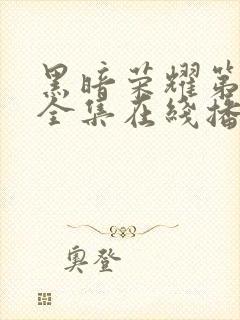 黑暗荣耀第
全集在线播
奥登